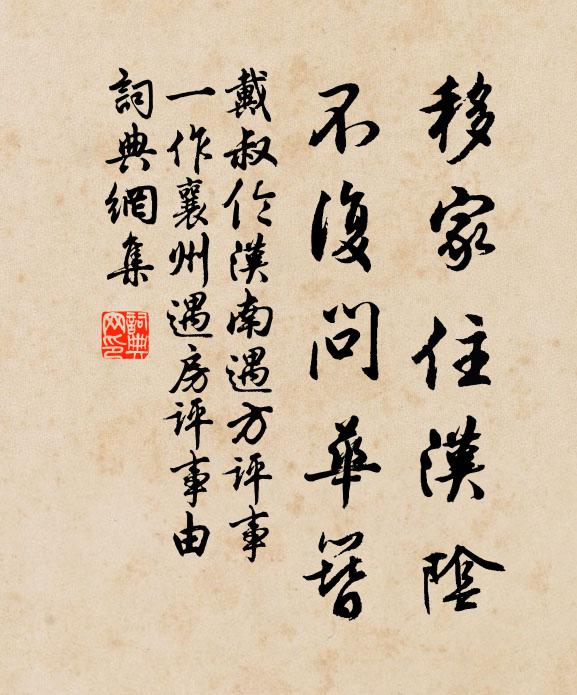 移家住漢陰
不復問華簪
戴叔伦漢南遇方評事
一作襄州遇房評事由
詞典網集
詞典
网印